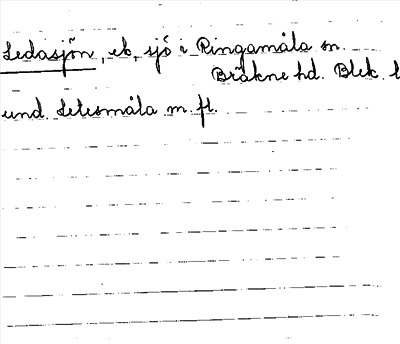 Ledasjön, ek. sjö i Ringamåla sn.
Bräkne hd. Blek. l
und. Letesmåla m. fl.